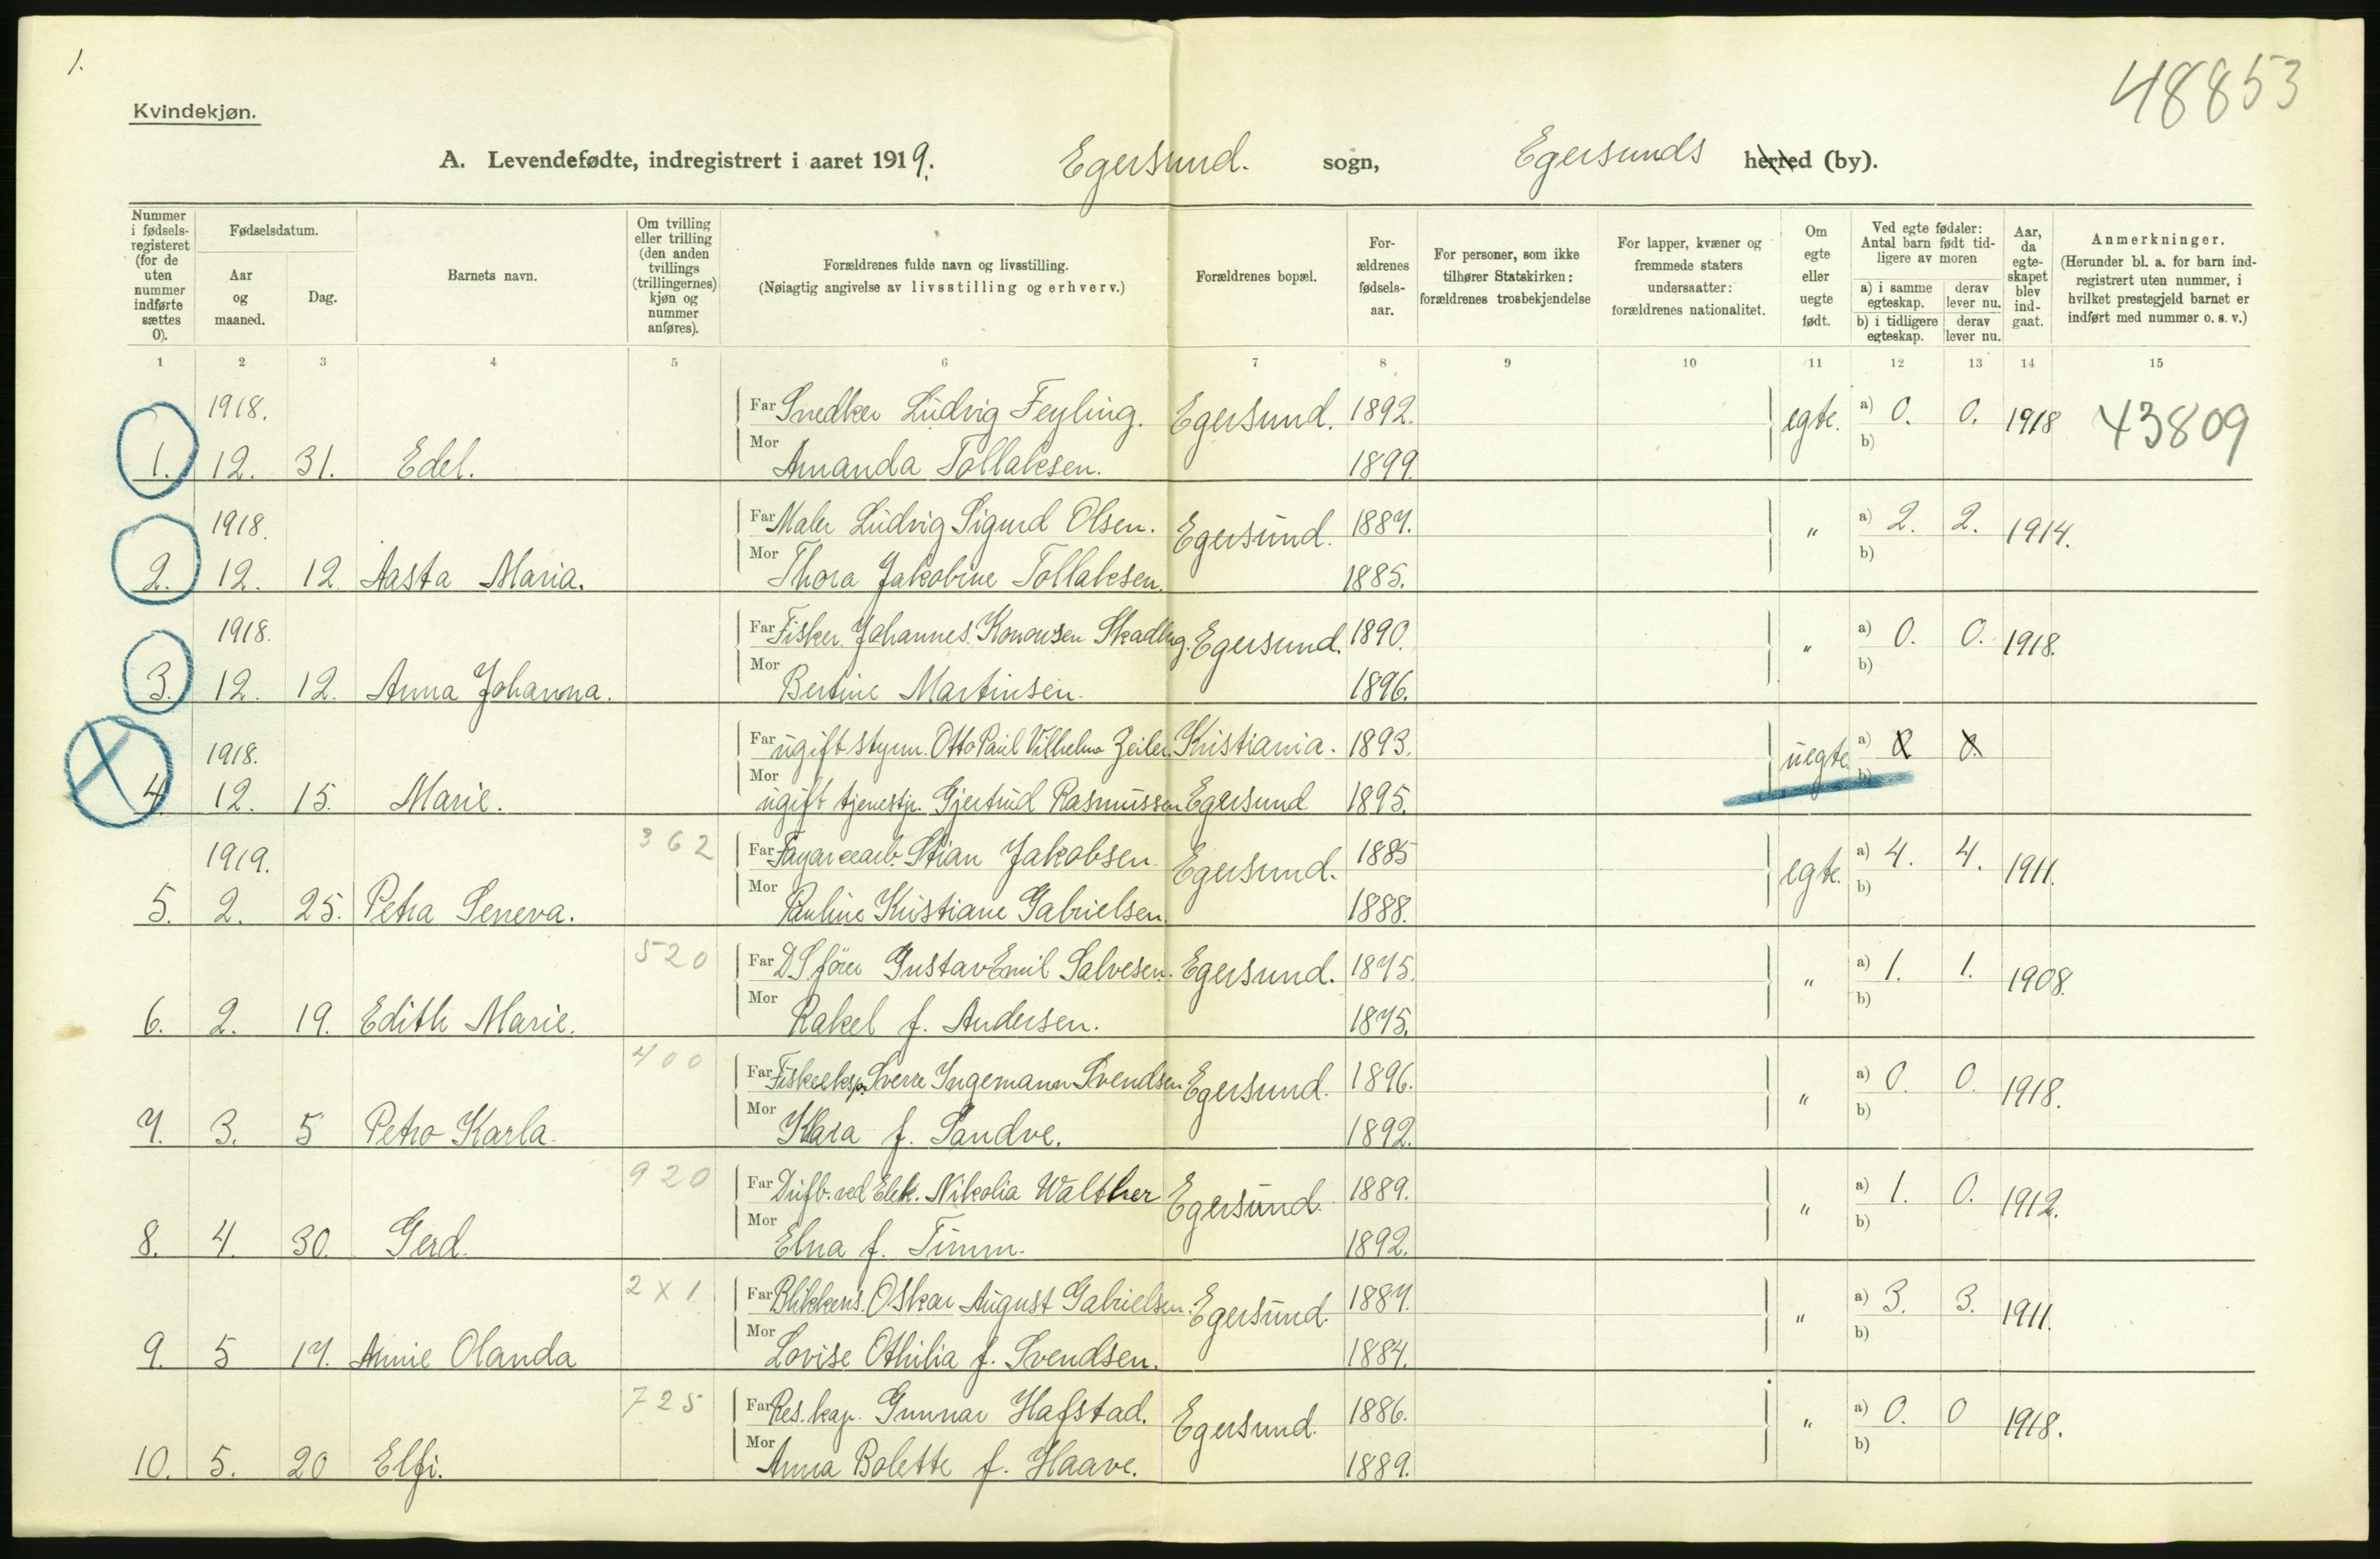 1.
48853
Kvindekjøn.
A. Levendefødte, indregistrert i aaret 1919. Egersund. sogn, Egersunds herred (by).
Nummer i fødsels-registeret (for de uten nummer indførte sættes 0).
Fødselsdatum.
Aar og maaned.
Dag.
Barnets navn.
Om tvilling eller trilling (den anden tvillings (trillingernes) kjøn og nummer anføres).
Forældrenes fulde navn og livsstilling.
(Nøiagtig angivelse av livsstilling og erhverv.)
Forældrenes bopæl.
For-ældrenes fødsels-aar.
For personer, som ikke tilhører Statskirken: forældrenes trosbekjendelse
For lapper, kvæner og fremmede staters undersaatter: forældrenes nationalitet.
Om egte eller uegte født.
Ved egte fødsler: Antal barn født tid-ligere av moren
a) i samme egteskap. derav lever nu.
b) i tidligere egteskap. derav lever nu.
Aar, da egte-skapet blev ind-gaat.
Anmerkninger.
(Herunder bl. a. for barn ind-registrert uten nummer, i hvilket prestegjeld barnet er indført med nummer o. s. v.)
1 2 3 4 5 6 7 8 9 10 11 12 13 14 15
1918. Far Snedker Ludvig Feyling. Egersund. 1892. egte. a) 0. 0. 1918 43809
1. 12. 31. Edel. Mor Amanda Tollaksen. 1899. b)
1918. Far Maler Ludvig Sigurd Olsen. Egersund. 1887. " a) 2. 2. 1914.
2. 12. 12. Aasta Maria. Mor Thora Jakobine Tollaksen. 1885. b)
1918. Far Fisker Johannes Skadbg. Egersund. 1890. " a) 0. 0. 1918.
3. 12. 12. Anna Johanna. Mor Bertine Martinsen. 1896. b)
1918. Far ugift styrm. Otto Paul Vilhelm Zeiler. Kristiania. 1893. uegte. a) 0 0.
4. 12. 15. Marie. Mor ugift tjenestp. Gjertrud Rasmussen Egersund 1895. b)
1919. 362 Far Stian Jakobsen. Egersund. 1885 egte. a) 4. 4. 1911.
5. 2. 25. Petra Seneva. Mor Pauline Kristiane Gabrielsen. 1888. b)
520 Far D.S. fører Gustav Emil Salvesen. Egersund. 1875. " a) 1. 1. 1908.
6. 2. 19. Edith Marie. Mor Rakel f. Andersen. 1875. b)
400 Far Fiskeeksp. Sverre Ingemann Svendsen Egersund. 1896. " a) 0. 0. 1918.
7. 3. 5 Petro Karla. Mor Klara f. Sandve. 1892. b)
920 Far Driftb. ved Elek. Nikolia Walther Egersund. 1889. " a) 1. 0. 1912.
8. 4. 30. Gerd. Mor Elna f. Timm. 1892. b)
2 x 1 Far Blikkens. Oskar August Gabrielsen. Egersund. 1887. " a) 3. 3. 1911.
9. 5 17. Annie Olanda Mor Lovise Othilia f. Svendsen. 1884. b)
725 Far Res. kap. Gunnar Hafstad. Egersund. 1886. " a) 0. 0 1918.
10. 5. 20 Elfi. Mor Anna Bolette f. Haave. 1889. b)